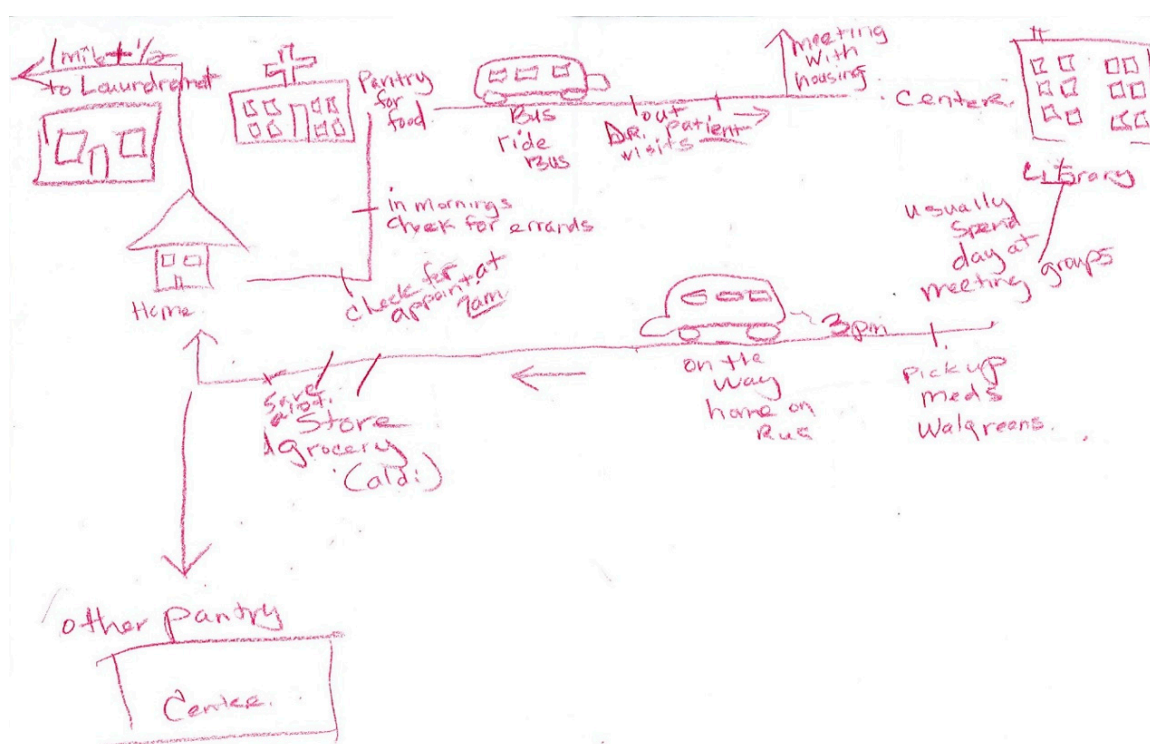 1 mile + 1/2
to Laundromat
Pantry
for
food
Bus
ride
Bus
out
DR. patient
visits
meeting
with
housing
Center
Library
usually
spend
day at
meeting groups
in mornings
check for errands
check for
appoint. at
9am
Home
3pm
on the
way
home on
Bus
Pick up
meds
Walgreens.
Save
alot.
Store
grocery
(aldi)
other pantry
Center.